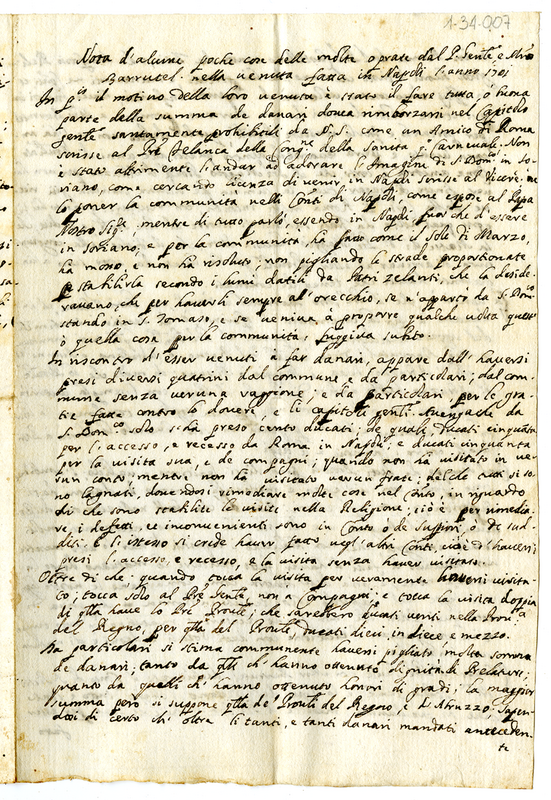 1-34.007
Nota d'alcune poche cose delle molte oprate dal P. Gente e Mro
Barrutel nella venuta fatta in Napoli l'anno 1701
In pis il motivo della loro venuta è stato il fare tutta, ò buona
parte della summa de danari dovea rimborzarsi nel Capitolo
gente santamente prohibitoli da N.S. come un Amico di Roma
scrisse al Pre Celanca della Congne della Sanità p. Carnevali. Non
è stato altrimente l'andar ad adorare l'Imagine di S. Domco in So-
riano, come cercando licenza di venir in Napoli scrisse al Vicere: ne
lo poner la communità nelli Conti di Napoli, come espose al Papa
Nostro Sigre, mentre di tutto parlò, essendo in Napoli, fuor che d'essere
in Soriano, e per la communità, ha fatto come il Sole di Marzo,
ha mosso, e non ha risoluto; non pigliando le strade proportionate
p stabilirla secondo i lumi datili da Patri zelanti, che la deside-
ravano, che per haverli sempre al'orecchio, se n'apparto da S. Domco
stando in S. Tomaso, e se veniva à proporre qualche volta questa
ò quella cosa per la communità, fuggiva subito.
In riscontro d'esser venuti à far danari, appare dall'haversi
presi diversi quatrini dal commune e da particolari; dal com-
mune senza veruna raggione; e da particolari, per le gra-
tie fatte contro lo dovere, e li capitoli genti. Avengache da
S. Domco solo s'hà preso cento ducati; de quali ducati cinquanta
per l'accesso, e recesso da Roma in Napoli; e ducati cinquanta
per la visita sua, e de compagni; quando non ha visitato in ve-
sun conto; mentre non hà visitato verun frate; del che tutti si so-
no lagnati, dovendosi rimediare molte cose nel Conto, in riguardo
di che sono stabilite le visite nella Religione; ciò è per rimedia-
re, i defetti, et inconvenienti sono in Conto ò de Superi, ò de sud-
diti. E l'istesso si crede haver fatto negl'altri Conti, cioè d'haversi
presi l'accesso, e recesso, e la visita senza haver visitato.
Oltre di che, quando tocca la visita per veramente haversi visita-
to; tocca solo al Pre Gente, non a Compagni; e tocca la visita doppia
di qlla have lo Pre Proule; che sarebbero ducati venti nella Provca
del Regno, per qlla del Proule, ducati dieci, in diece e mezzo.
Da particolari si stima communente haversi pigliato molta somma
de danari; tanto da qlli ch'hanno ottenuto dignità di Prelature;
quanto da quelli ch'hanno ottenuto honori di gradi; la maggior
summa però si suppone qlla de' Prouli del Regno e d'Abruzzo; sapen-
dosi di certo ch'oltre li tanti, e tanti danari mandati anteceden-
te